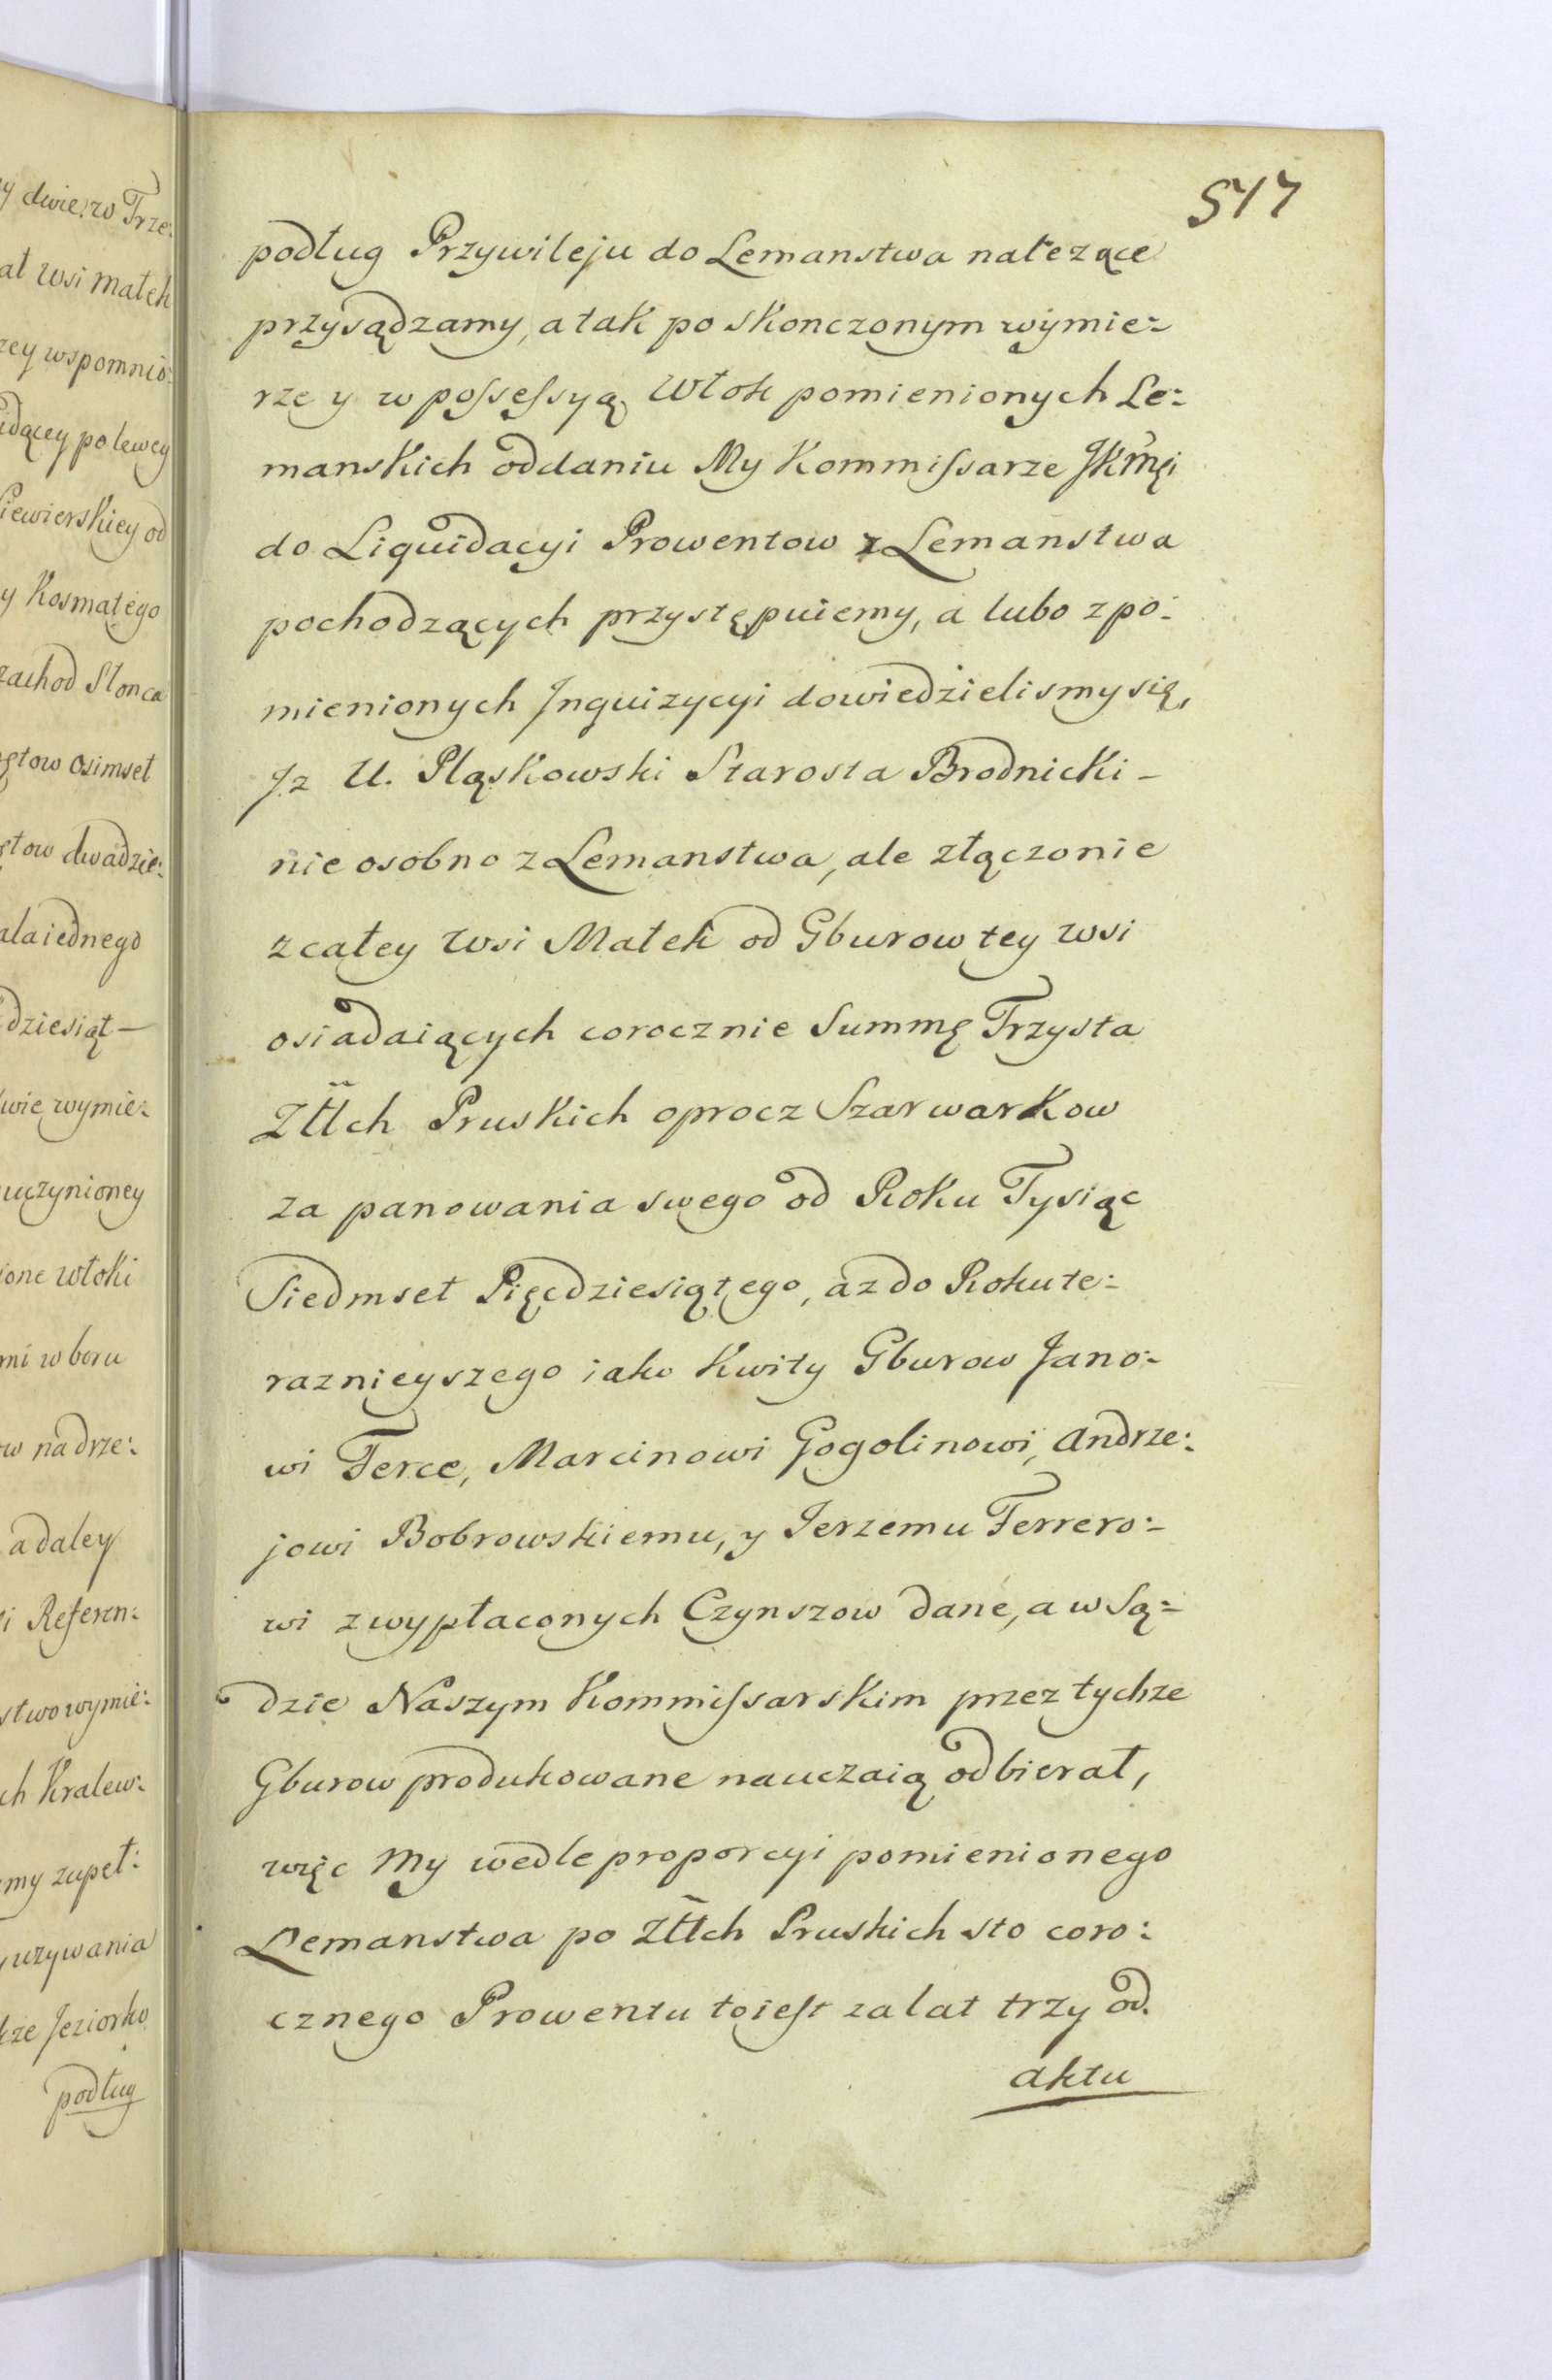 y dwie, w Trze:
at wsi Małek
rzey wspomnio:
idącey po lewey
Siewierskiey od
y Kosmatego
zachod Słonca
ętow osimset
ętow dwadzie:
ala iednego
dziesiąt —
wie wymie:
uczynioney
ione włoki
mi w boru
ow na drze:
a daley
i Referen:
stwo wymie:
ch Kralew:
my zupeł:
używania
kze Jeziorko
podług
547
podług Przywileju do Lemanstwa należące
przysądzamy, a tak po skonczonym wymie:
rze y w poſseſsyą Włok pomienionych Le:
manskich oddaniu My Kommiſsarze JKmci
do Liquidacyi Prowentow z Lemanstwa
pochodzących przystępuiemy, a lubo z po:
mienionych Inquizycyi dowiedzielismy się,
Iz U. Pląskowski Starosta Brodnicki –
nie osobno z Lemanstwa, ale złączonie
z całey wsi Małek od Gburow tey wsi
osiadaiących corocznie Summę Trzysta
Złłch Pruskich oprocz Szarwarkow
za panowania swego od Roku Tysiąc
Siedmset Pięcdziesiątego, az do Roku te:
raznieyszego iako Kwity Gburow Jano:
wi Ferce, Marcinowi Gogolinowi, Andrze:
jowi Bobrowskiemu, y Jerzemu Ferrero:
wi z wypłaconych Czynszow dane, a w Są:
dzie Naszym Kommiſsarskim przez tychze
Gburow produkowane nauczaią odbierał,
więc My wedle proporcyi pomienionego
Lemanstwa po Złłch Pruskich sto coro:
cznego Prowentu toieſt za lat trzy od
aktu